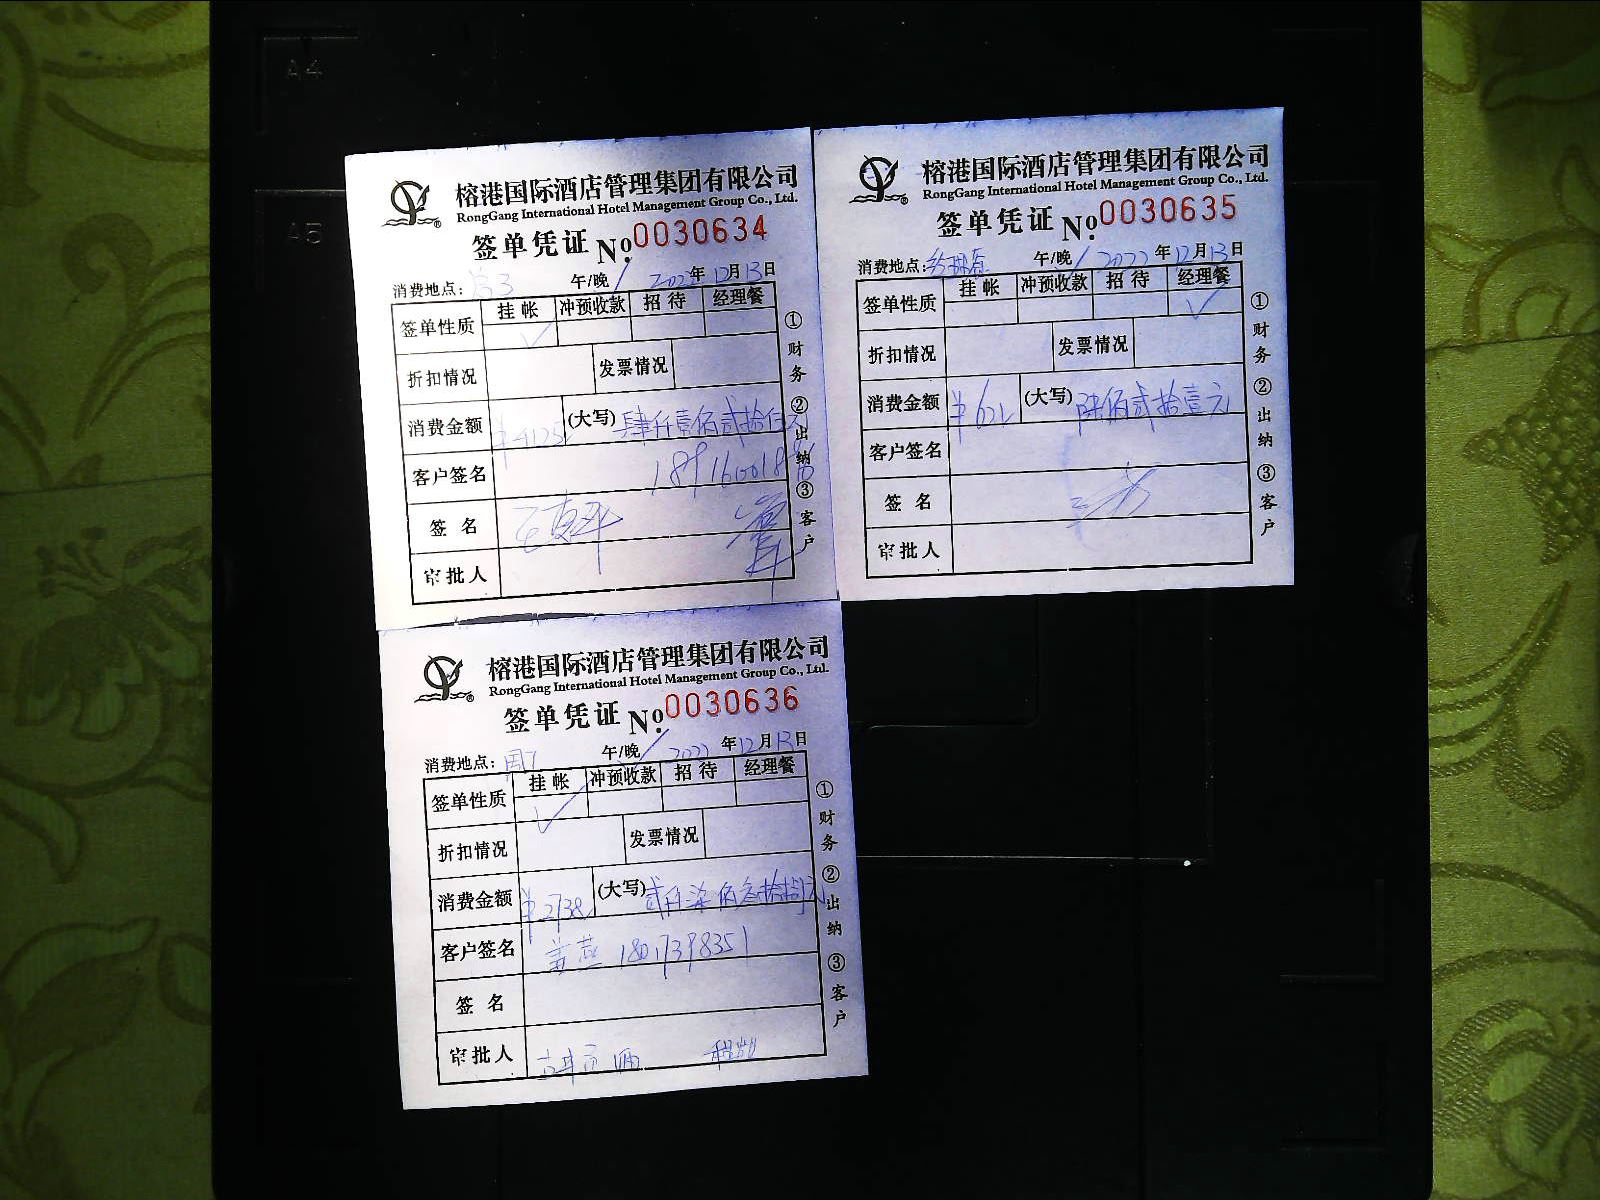 A4
A5
榕港国际酒店管理集团有限公司
RongGang International Hotel Management Group Co., Ltd.
签单凭证 No. 0030634
消费地点: 午/晚 2022年12月13日
签单性质 挂帐 冲预收款 招待 经理餐
✓
折扣情况 发票情况
消费金额 ¥4125 (大写) 肆仟壹佰贰拾伍元
客户签名
签名
审批人
①财务 ②出纳 ③客户
榕港国际酒店管理集团有限公司
RongGang International Hotel Management Group Co., Ltd.
签单凭证 No. 0030635
消费地点: 午/晚 2022年12月13日
签单性质 挂帐 冲预收款 招待 经理餐
✓
折扣情况 发票情况
消费金额 ¥621 (大写) 陆佰贰拾壹元
客户签名
签名
审批人
①财务 ②出纳 ③客户
榕港国际酒店管理集团有限公司
RongGang International Hotel Management Group Co., Ltd.
签单凭证 No. 0030636
消费地点: 午/晚 2022年12月13日
签单性质 挂帐 冲预收款 招待 经理餐
✓
折扣情况 发票情况
消费金额 ¥2738 (大写) 贰仟柒佰叁拾捌元
客户签名 18017398351
签名
审批人
①财务 ②出纳 ③客户